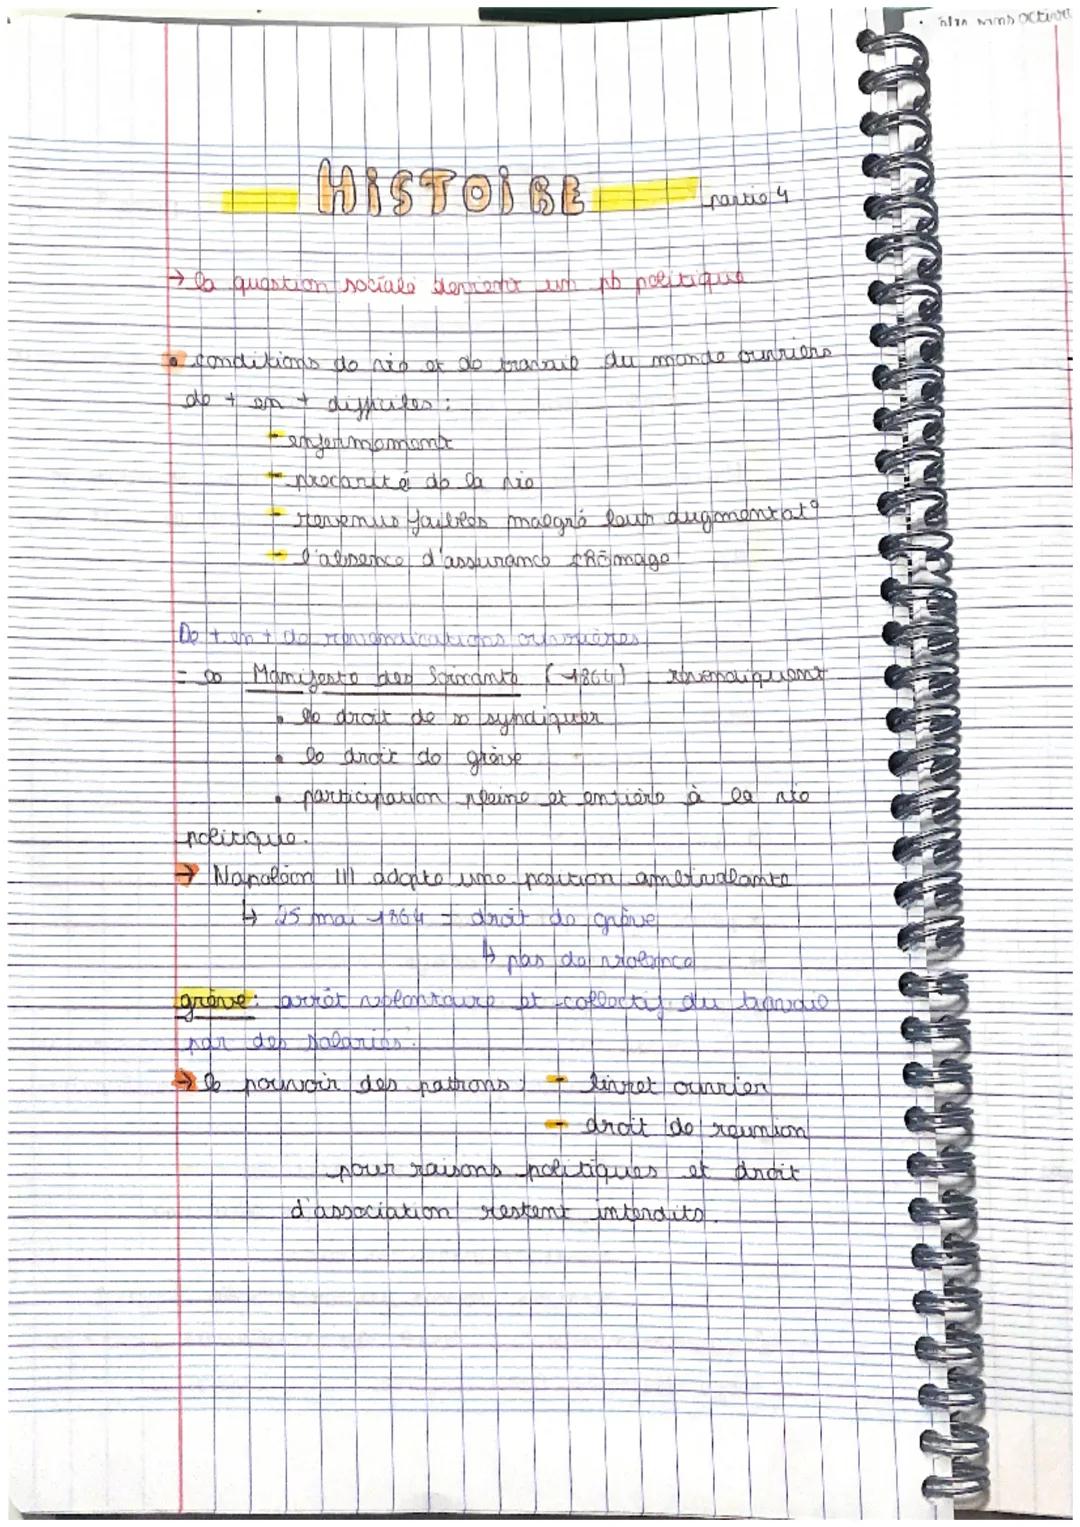 HISTOIRE partie 4
→ la question sociale devient un pb politique
• conditions de vie et de travail du monde ouvriers
de + en + difficiles :
- enfermement
- précarité de la vie
- revenus faibles malgré leur augmentat°
- l'absence d'assurance chômage
De + en + de revendications ouvrières
= le Manifeste des Soixante (1864) : revendiquent
• le droit de se syndiquer
• le droit de grève
• participation pleine et entière à la vie
politique.
→ Napoléon III adopte une position ambivalante
↳ 25 mai 1864 = droit de grève
↳ pas de violence
grève : arrêt volontaire et collectif du travail
par des salariés.
→ le pouvoir des patrons : - livret ouvrier
- droit de reunion
pour raisons politiques et droit
d'association restent interdits.